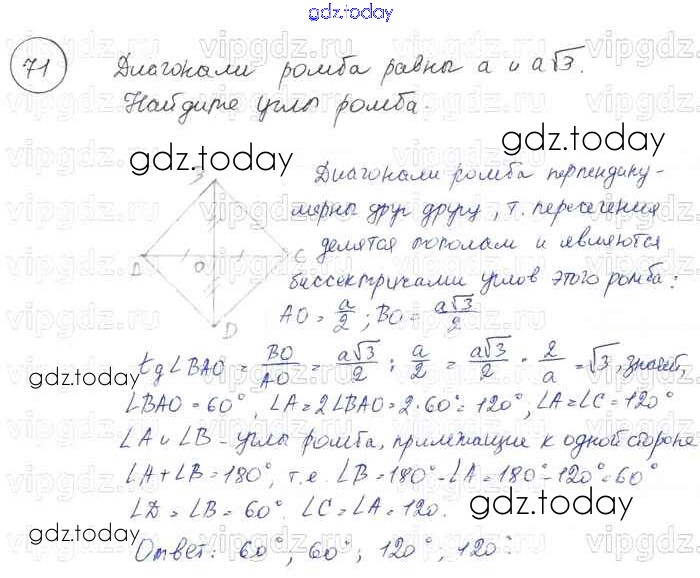 gdz.today
71 Диагонали ромба равны a и a√3.
Найдите углы ромба.
gdz.today
gdz.today
Диагонали ромба перпендику-
лярны друг другу, т. пересечения
делятся пополам и являются
биссектрисами углов этого ромба:
AO = a/2 ; BO = a√3/2
B
D O C
D
tg∠BAO = BO/AO = a√3/2 : a/2 = a√3/2 · 2/a = √3, значит,
gdz.today
∠BAO = 60°, ∠A = 2∠BAO = 2·60° = 120°, ∠A = ∠C = 120°
∠A и ∠B - углы ромба, прилежащие к одной стороне
∠A + ∠B = 180°, т.е. ∠B = 180° - ∠A = 180° - 120° = 60°
∠D = ∠B = 60° ∠C = ∠A = 120.
gdz.today
gdz.today
Ответ: 60°; 60°; 120°; 120°